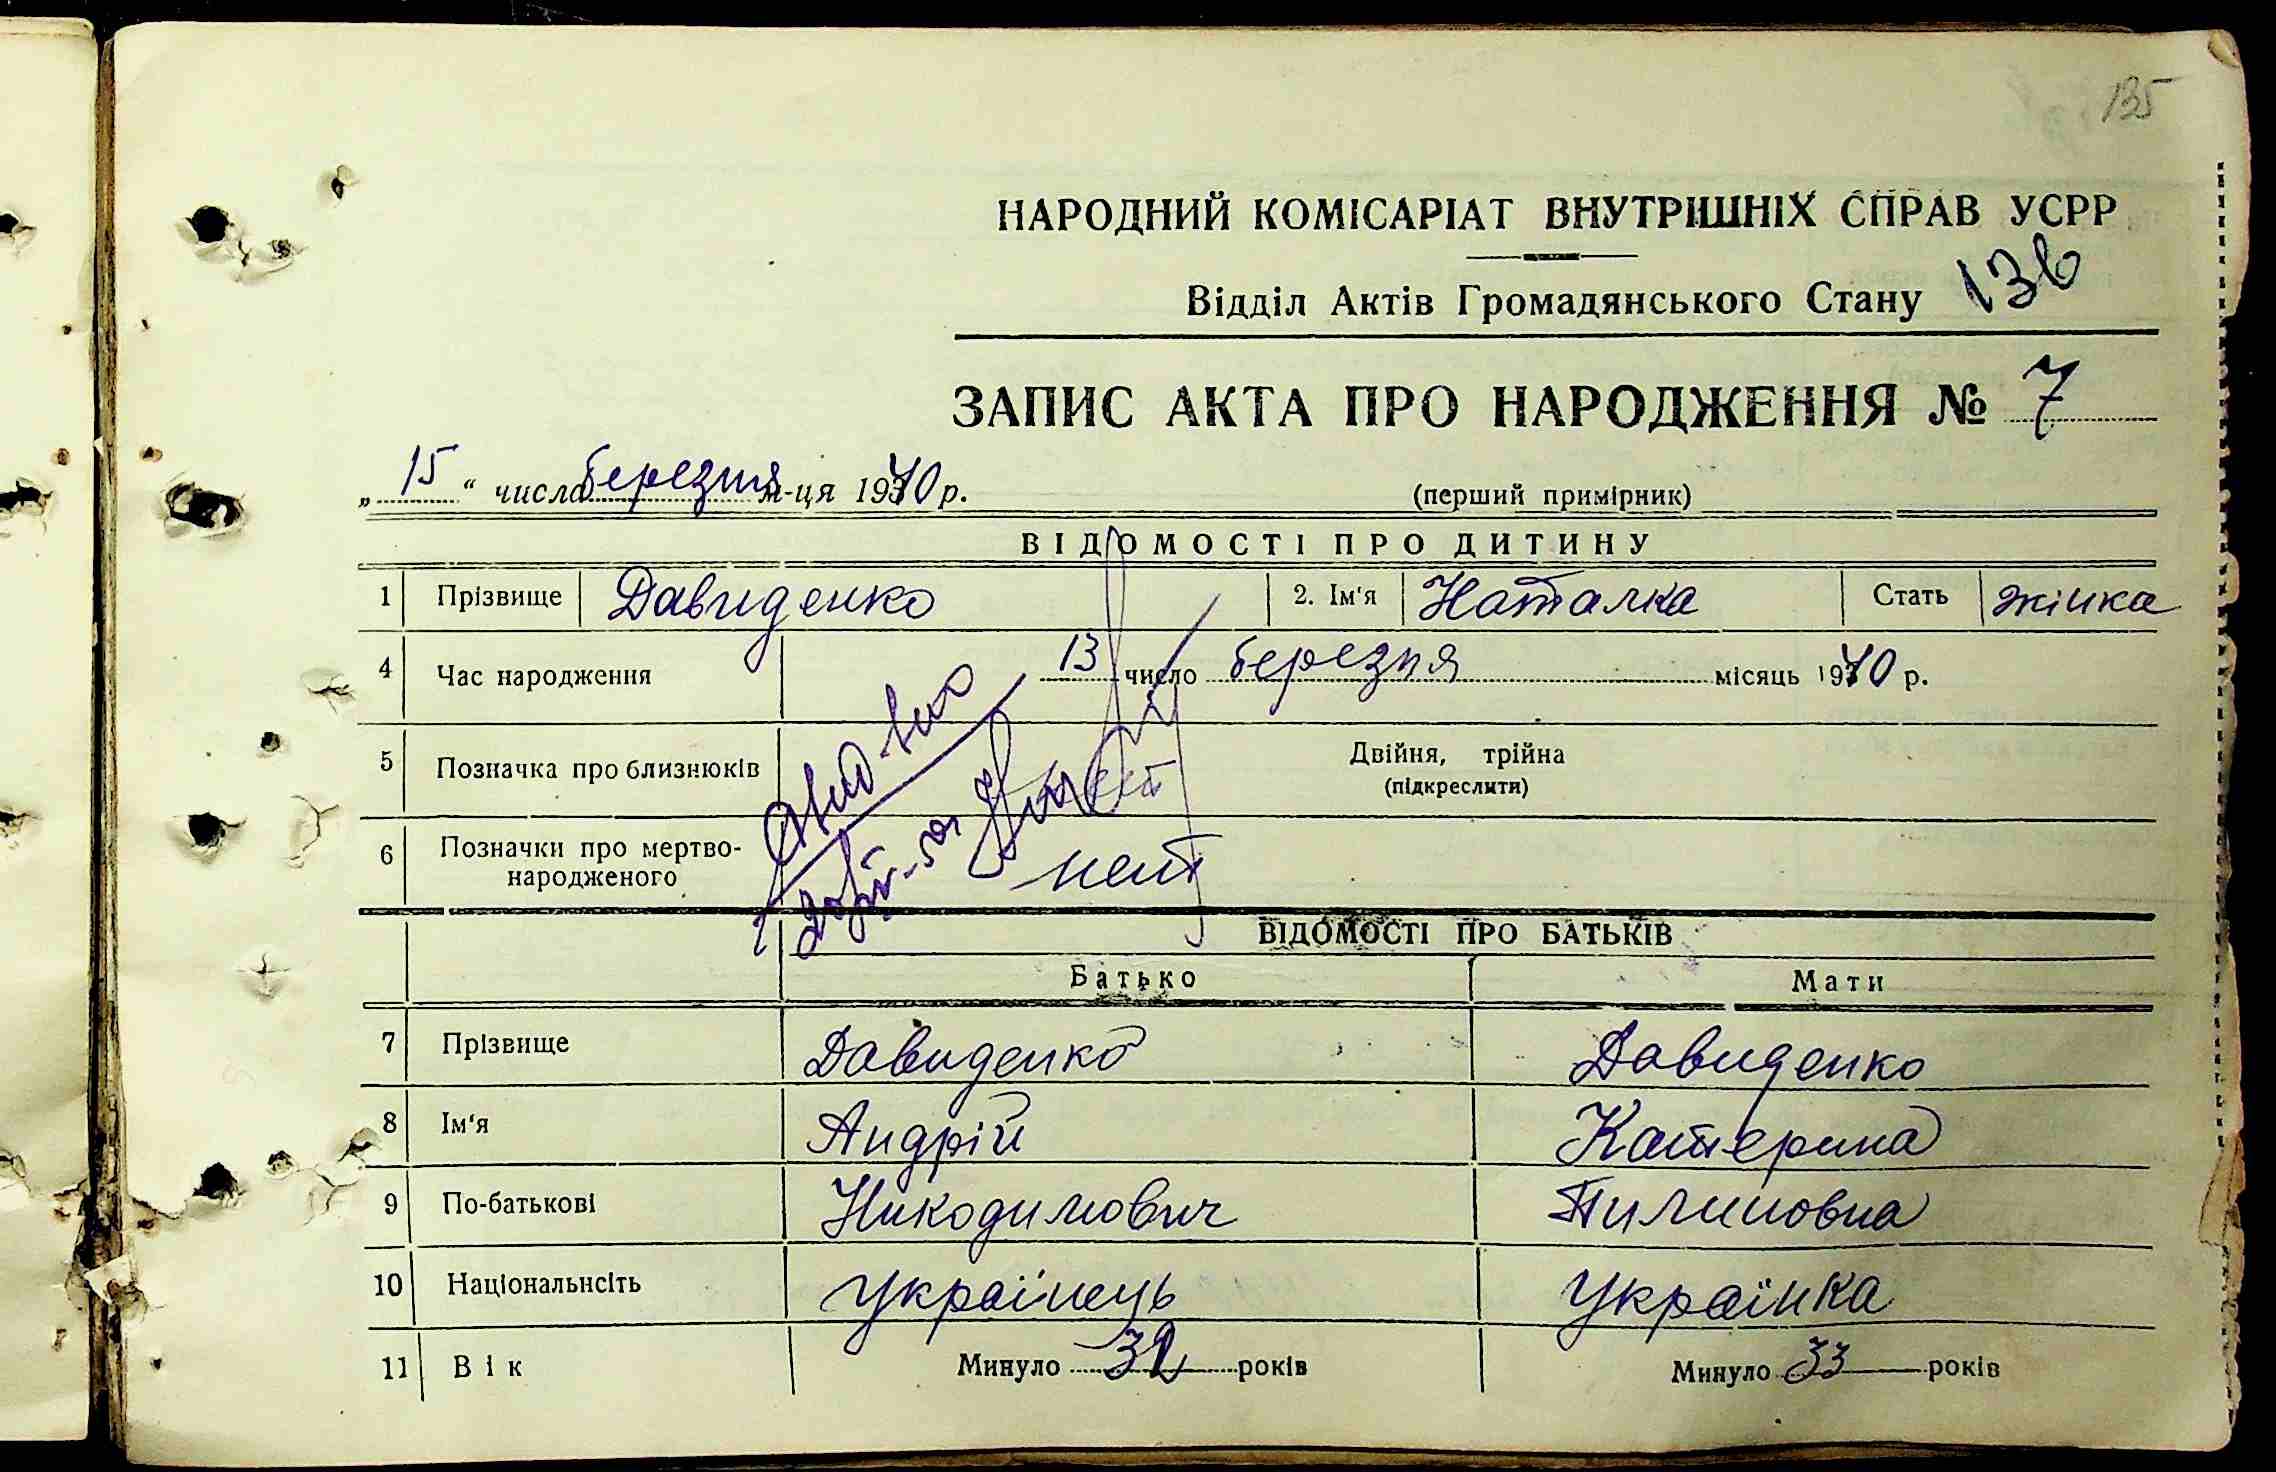 135
НАРОДНИЙ КОМІСАРІАТ ВНУТРІШНІХ СПРАВ УСРР
Відділ Актів Громадянського Стану 136
ЗАПИС АКТА ПРО НАРОДЖЕННЯ № 7
„ 15 “ числа березня м-ця 1940 р. (перший примірник)
ВІДОМОСТІ ПРО ДИТИНУ
1 Прізвище Давиденко 2. Ім'я Наталка Стать жінка
4 Час народження 13 число березня місяць 1940 р.
5 Позначка про близнюків Двійня, трійна
(підкреслити)
6 Позначки про мертво-
народженого нет
ВІДОМОСТІ ПРО БАТЬКІВ
Батько Мати
7 Прізвище Давиденко Давиденко
8 Ім'я Андрій Катерина
9 По-батькові Никодимович Пилиповна
10 Національнсіть Українець Українка
11 Вік Минуло 32 років Минуло 33 років